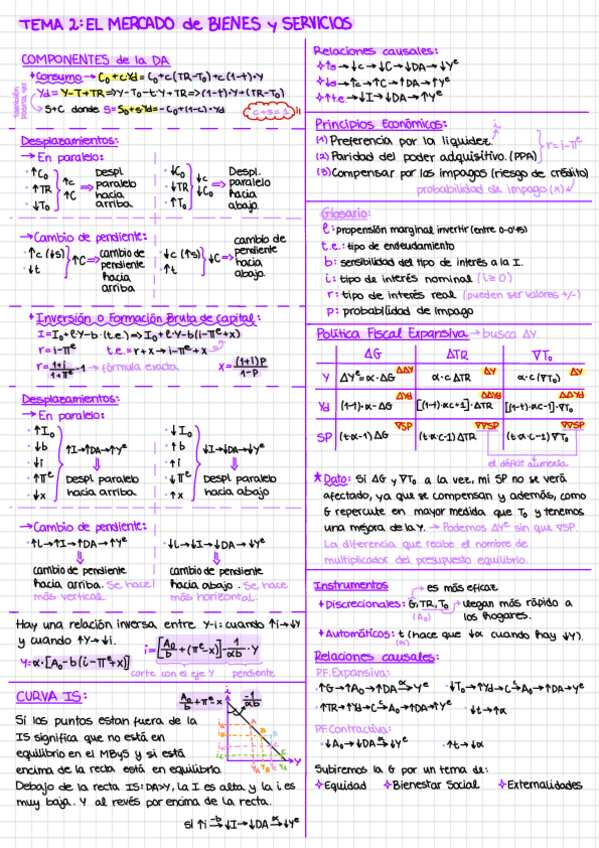 TEMA 2: EL MERCADO de BIENES y SERVICIOS
COMPONENTES de la DA
Consumo → C₀ + c·Yd = C₀ + c(TR-T₀) + c(1-t)·Y
también podría ser
Yd = Y-T+TR => Y-T₀-t·Y+TR => (1-t)·Y+(TR-T₀)
S+C donde S = S₀+s·Yd = -C₀+(1-c)·Yd
c+s=1
Desplazamientos:
→ En paralelo:
↑C₀
↑TR
↓T₀
↑c
↑C
Despl.
paralelo
hacia
arriba.
↓C₀
↓TR
↑T₀
↓c
↓C₀
Despl.
paralelo
hacia
abajo.
→ Cambio de pendiente:
↑c (↓s)
↓t
↑C =>
cambio de
pendiente
hacia
arriba
↓c (↑s)
↑t
↓C =>
cambio de
pendiente
hacia
abajo.
Inversión o Formación Bruta de Capital:
I = I₀+ℓ·Y-b·(t.e.) => I₀+ℓ·Y-b(i-πᵉ+x)
r = i-πᵉ t.e. = r+x → i-πᵉ+x
r = (1+i)/(1+πᵉ) - 1 → fórmula exacta x = (1+i)p/(1-p)
Desplazamientos:
→ En paralelo:
↑I₀
↓b
↓i
↑πᵉ
↓x
↑I→↑DA→↑Yᵉ
⇓
Despl paralelo
hacia arriba
↓I₀
↑b
↑i
↓πᵉ
↑x
↓I→↓DA→↓Yᵉ
⇓
Despl. paralelo
hacia abajo
→ Cambio de pendiente:
↑ℓ→↑I→↑DA→↑Yᵉ
⇓
cambio de pendiente
hacia arriba. Se hace
más vertical.
↓ℓ→↓I→↓DA→↓Yᵉ
⇓
cambio de pendiente
hacia abajo. Se hace
más horizontal.
Hay una relación inversa entre Y-i: cuando ↑i→↓Y
y cuando ↑Y→↓i.
i = [A₀/b + (πᵉ-x)] - 1/αb · Y
Y = α·[A₀-b(i-πᵉ+x)]
corte con el eje Y pendiente
CURVA IS:
A₀/b + πᵉ-x
-1/αb
Si los puntos estan fuera de la
IS significa que no está en
equilibrio en el MByS y si está
encima de la recta está en equilibrio.
Debajo de la recta IS: DA>Y, la I es alta y la i es
muy baja. Y al revés por encima de la recta.
si ↑i -b→ ↓I→↓DA α→ ↓Yᵉ
Relaciones causales:
↑s→↓c→↓C→↓DA→↓Yᵉ
↓s→↑c→↑C→↑DA→↑Yᵉ
↑t.e.→↓I→↓DA→↑Yᵉ
Principios Económicos:
i
(1) Preferencia por la liquidez.
(2) Paridad del poder adquisitivo. (PPA)
r = i-πᵉ
(3) Compensar por los impagos (riesgo de crédito)
probabilidad de impago (x)
Glosario:
ℓ: propensión marginal invertir (entre 0-0'45)
t.e.: tipo de endeudamiento
b: sensibilidad del tipo de interés a la I.
i: tipo de interés nominal (i≥0)
r: tipo de interés real (pueden ser valores +/-)
p: probabilidad de impago
Política Fiscal Expansiva → busca ΔY.
ΔG ΔTR ∇T₀
Y ΔYᵉ=α·ΔG ΔΔY α·c ΔTR ΔY α·c(∇T₀) ΔY
Yd (1-t)·α·ΔG ΔYd [(1-t)·αc+1]·ΔTR ΔΔYd [(1-t)·αc-1]·∇T₀ ΔΔYd
SP (t·α-1)ΔG ∇SP (t·α·c-1)ΔTR ∇∇SP (t·α·c-1)∇T₀ ∇∇SP
el déficit aumenta
Dato: Si ΔG y ∇T₀ a la vez, mi SP no se verá
afectado, ya que se compensan y además, como
G repercute en mayor medida que T₀ y tenemos
una mejora de la Y. → Podemos ΔYᵉ sin que ∇SP.
La diferencia que recibe el nombre de
multiplicador del presupuesto equilibrio.
Instrumentos
es más eficaz
Discrecionales: G, TR, T₀
(A₀)
llegan más rápido a
los hogares.
(α)
Automáticos: t (hace que ↓α cuando hay ↓Y).
Relaciones causales:
P.F. Expansiva:
↑G→↑A₀→↑DA α→ ↑Yᵉ
↓T₀→↑Yd→C c→A₀→↑DA→↑Yᵉ
↑TR→↑Yd→C c→A₀→↑DA→↑Yᵉ
↓t→↑α
P.F. Contractiva:
↓A₀→↓DA α→ ↓Yᵉ
↑t→↓α
Subiremos la G por un tema de:
Equidad Bienestar Social Externalidades